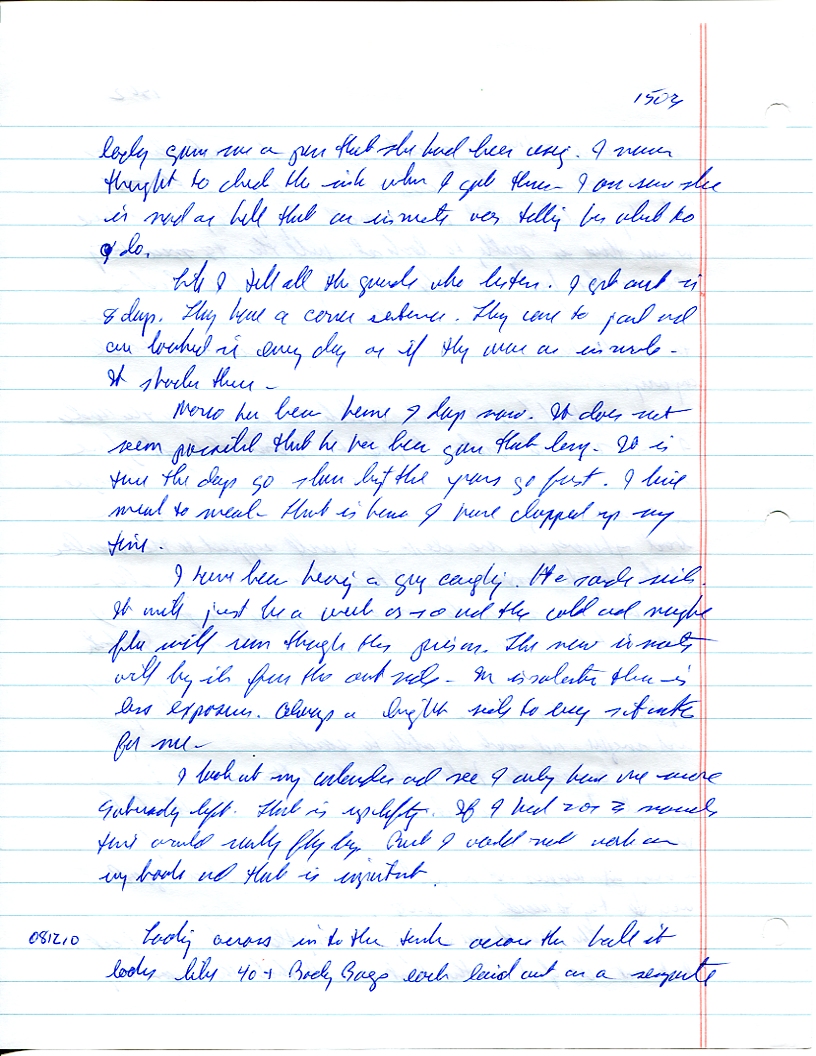 1503
lady gave me a pen that she had been using. I never
thought to check the ink when I got there - I am sure she
is mad as hell that an inmate was telling her what to
do.
Like I tell all the guards who listen. I get out in
8 days. They have a career sentence. They come to jail and
are locked in every day as if they were an inmate -
It shocks them -
has been home 7 days now. It does not
seem possible that he has been gone that long. It is
true the days go slow but the years go fast. I live
meal to meal - that is how I have chopped up my
time.
I have been hearing a guy coughing. He sounds sick.
It will just be a week or so and the cold and maybe
flu will run through this prison. The new inmates
will bring it from the outside - In isolation there is
less exposure. Always a bright side to every situation
for me -
I look at my calendar and see I only have one more
Saturday left. That is uplifting. If I had 2 or 3 novels
time would really fly by. But I would not work on
my book and that is important.
081210 Looking across in to the tank across the hall it
looks like 40+ Body Bags each laid out on a separate